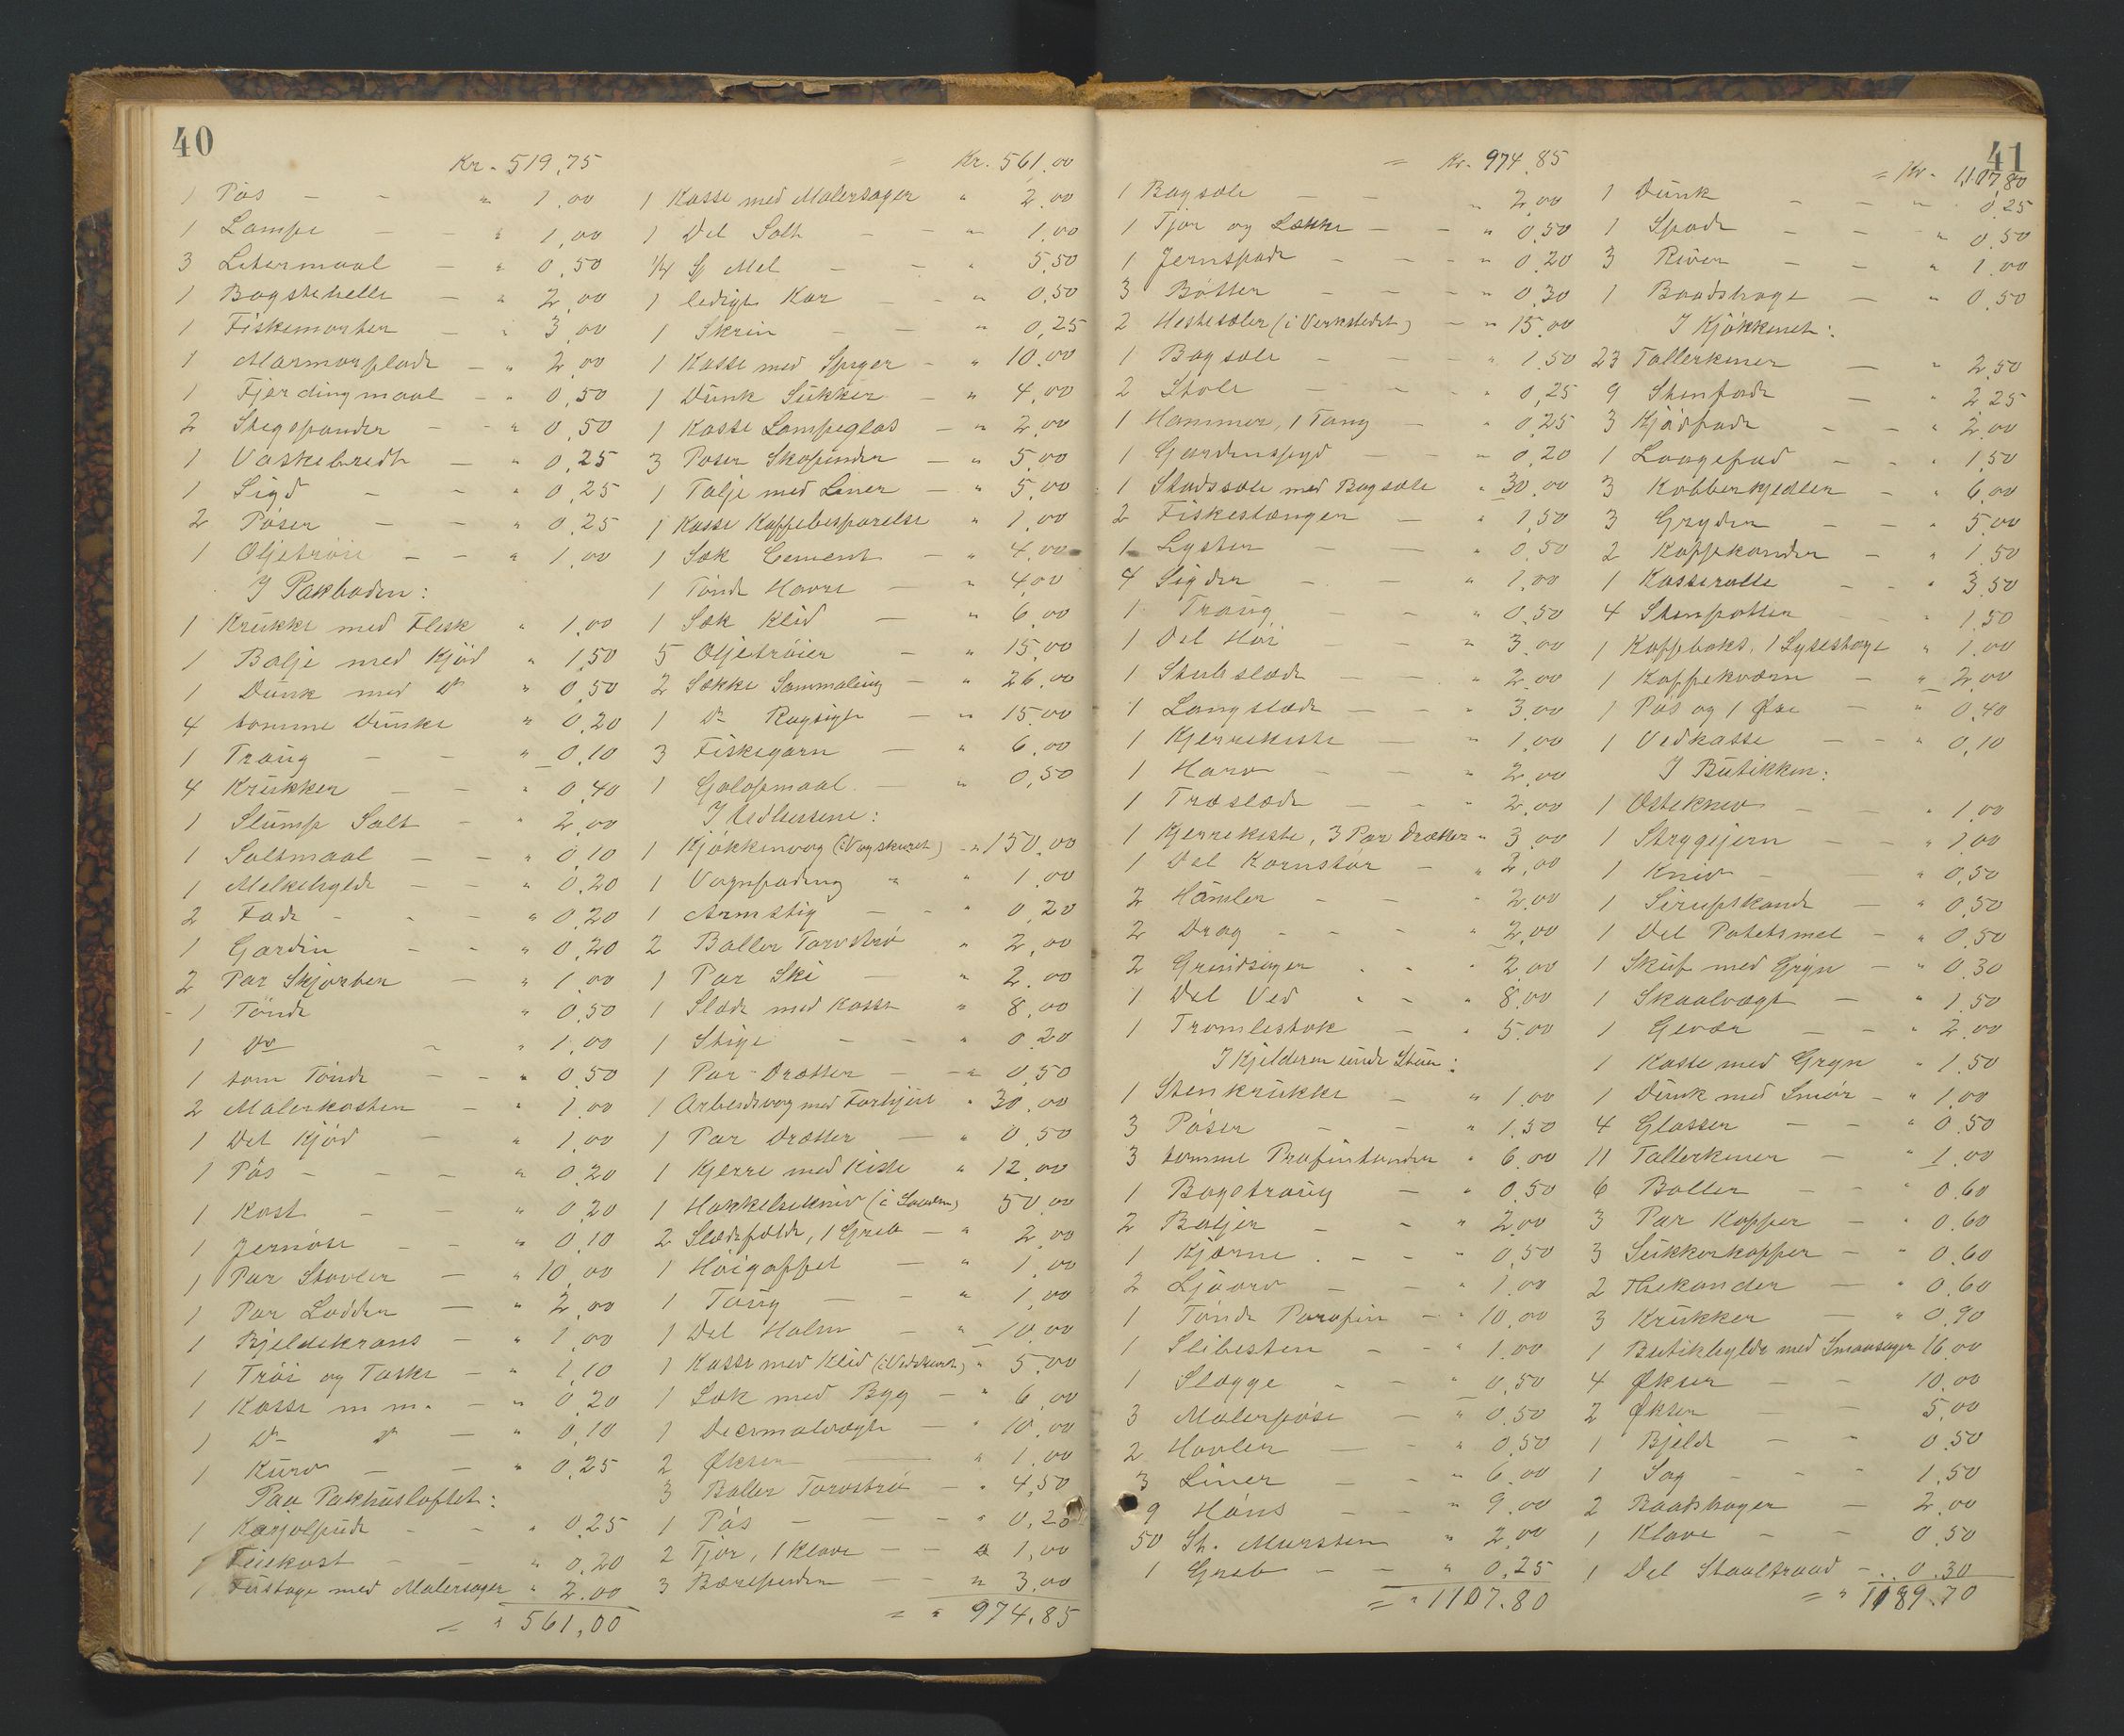 40
Kr. 519,75
1 Pøs - - " 1,00
1 Lampe - - " 1,00
3 Litermaal - " 0,50
1 Bagstehelle - " 2,00
1 Fiskemorter - " 3,00
1 Marmorplade - " 2,00
1 Fjerdingmaal - " 0,50
2 Stegepander - - " 0,50
1 Vaskebredt - " 0,25
1 Sigd - - " 0,25
2 Pøser - - " 0,25
1 Oljetrøie - - " 1,00
I Pakboden:
1 Krukke med Flesk " 1,00
1 Balje med Kjød " 1,50
1 Dunk med Do " 0,50
4 tomme Dunke " 0,20
1 Traug - - " 0,10
4 Krukker - - " 0,40
1 Slump Salt - " 2,00
1 Saltmaal - - " 0,10
1 Melkehylde - - " 0,20
2 Fade - - - " 0,20
1 Gardin - - " 0,20
2 Par Skjorter - " 1,00
1 Tønde " 0,50
1 Do - " 1,00
1 tom Tønde - - " 0,50
2 Malerkoster - " 1,00
1 Del Kjød - " 1,00
1 Pøs - - - " 0,20
1 Kost - - " 0,20
1 Jernøse - - " 0,10
1 Par Støvler - " 10,00
1 Par Lodder - " 2,00
1 Bjeldekrans - " 1,00
1 Trøi og Taske - " 1,10
1 Kasse m m. - " 0,20
1 Do Do - " 0,10
1 Kurv - - " 0,25
Paa Pakhusloftet:
1 Karjolpude - - " 0,25
1 Feiekost - - " 0,20
1 Fustage med Malersager " 2,00
= " 561,00
= Kr. 561,00
1 Kasse med Malersager " 2,00
1 Del Salt - - " 1,00
1/4 S Mel - - " 5,50
1 ledigt Kar - - " 0,50
1 Skrin - - " 0,25
1 Kasse med Spiger - " 10,00
1 Dunk Sukker - " 4,00
1 Kasse Lampeglas - " 2,00
3 Poser Skopinder - " 5,00
1 Talje med Liner - " 5,00
1 Kasse Kaffebesparelse " 1,00
1 Sæk Cement - " 4,00
1 Tønde Havre - " 4,00
1 Sæk Klid - " 6,00
5 Oljetrøier - " 15,00
2 Sække Sammaling - " 26,00
1 Do Rugsigt - " 15,00
3 Fiskegarn - " 6,00
1 Galopmaal - " 0,50
I Udhusene:
1 Kjøkkenvog (i Vogskuret) - " 150,00
1 Vognfading " " 1,00
1 Armstig - - " 0,20
2 Baller Torvstrø " 2,00
1 Par Ski - " 2,00
1 Slæde med Kasse " 8,00
1 Stige - - " 0,20
1 Par Drætter - - " 0,50
1 Arbeidsvog med Forhjul " 30,00
1 Par Drætter - " 0,50
1 Kjerre med Kiste " 12,00
1 Hakkelsekniv (i Laaden) 50,00
2 Slædefælde, 1 Greb - " 2,00
1 Høigaffel - " 1,00
1 Taug - - " 1,00
1 Del Halm - " 10,00
1 Kasse med Klid (i Vedskuret) " 5,00
1 Sæk med Byg - " 6,00
1 Decimalvægt - " 10,00
2 Økser - " 1,00
3 Baller Torvstrø - " 4,50
1 Pøs - - - " 0,20
2 Tjor, 1 Klave - - " 1,00
3 Bærepuder - - " 3,00
= " 974,85
= Kr. 974,85
1 Bagsæle - - " 2,00
1 Tjor og Lække - - " 0,50
1 Jernspade - - - " 0,20
3 Bøtter - - - " 0,30
2 Hestesæler (i Verkstedet) - " 15,00
1 Bagsæle - - - " 1,50
2 Stole - - - " 0,25
1 Hammer, 1 Tang - " 0,25
1 Gardinspyd - - - " 0,20
1 Stadssæle med Bagsæle " 30,00
2 Fiskestænger - " 1,50
1 Lyster - - " 0,50
4 Sigder - - - " 1,00
1 Traug - - " 0,50
1 Del Høi - - " 3,00
1 Stubslæde - - " 2,00
1 Langslæde - - " 3,00
1 Kjerrekiste - - " 1,00
1 Harv - - - " 2,00
1 Træslæde - - " 2,00
1 Kjerrekiste, 3 Par Drætter " 3,00
1 Del Kornstør - " 2,00
2 Hamler - - " 2,00
2 Drag - - - " 2,00
2 Grindsager - - " 2,00
1 Del Ved - - " 8,00
1 Tromlestok - - " 5,00
I Kjelderen under Stuen:
1 Stenkrukke - " 1,00
3 Pøser - - " 1,50
3 tomme Prafintønder " 6,00
1 Bagetraug - " 0,50
2 Baljer - - " 2,00
1 Kjærne - - " 0,50
2 Ljaaorv - - " 1,00
1 Tønde Parafin - " 10,00
1 Slibesten - - " 1,00
1 Slægge - - " 0,50
3 Malerpøse - " 0,50
2 Høvler - - " 0,50
3 Liner - - " 6,00
9 Høns - - " 9,00
50 St. Mursten " 2,00
1 Greb - - " 0,25
= " 1107.80
41
= Kr. 1,107,80
1 Dunk - - " 0,25
1 Spade - - " 0,50
3 River - - " 1,00
1 Baadshage - " 0,50
I Kjøkkenet:
23 Tallerkener - " 2,50
9 Stenfade - " 2,25
3 Kjødfade - - " 2,00
1 Laagefad - - " 1,50
3 Kobberkjedler - " 6,00
3 Gryder - - " 5,00
2 Kaffekander - " 1,50
1 Kasserolle - - " 3,50
4 Stenpotter - " 1,50
1 Kaffeboks, 1 Lysestage " 1,00
1 Kaffekværn - " 2,00
1 Pøs og 1 Øse - " 0,40
1 Vedkasse - - " 0,10
I Butikken:
1 Ostekniv - - " 1,00
1 Strygejern - - " 1,00
1 Kniv - - " 0,50
1 Sirupskande - " 0,50
1 Del Potetesmel - " 0,50
1 Skuf med Gryn - " 0,30
1 Skaalvægt - " 1,50
1 Gevær - - " 2,00
1 Kasse med Gryn " 1,50
1 Dunk med Smør - " 1,00
4 Glasser - - " 0,50
11 Tallerkener - " 1,00
6 Boller - - " 0,60
3 Par Kopper - " 0,60
3 Sukkerkopper - " 0,60
2 Thekander - " 0,60
3 Krukker - " 0,90
1 Butikhylde med Smaasager 16,00
4 Økser - - 10,00
2 Økser - - 5,00
1 Bjelde - - 0,50
1 Sag - - - 1,50
2 Baadshager - 2,00
1 Klave - - 0,50
1 Del Staaltraad - " 0,30
= " 1189.70